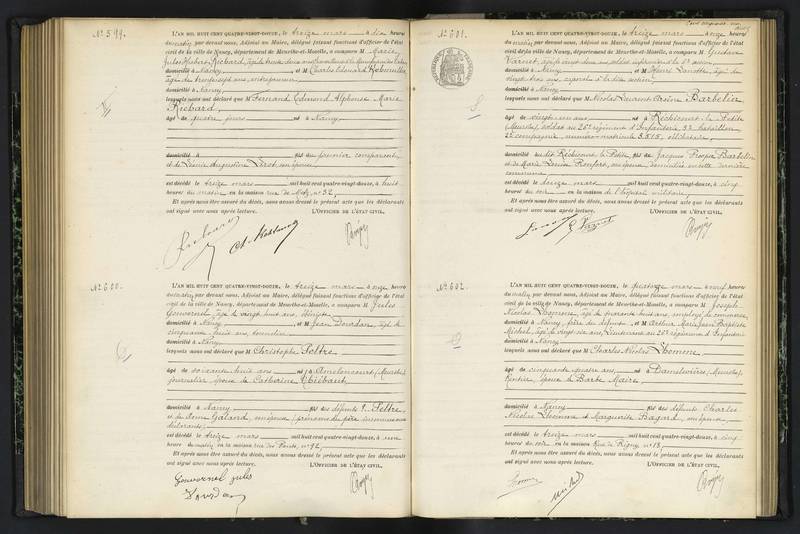 N° 599.
L'AN MIL HUIT CENT QUATRE-VINGT-DOUZE, le treize mars à dix heures
du matin par devant nous, Adjoint au Maire, délégué faisant fonctions d'officier de l'état
civil de la ville de Nancy, département de Meurthe-et-Moselle, a comparu M Marie
Jules Hubert Richard, âgé de trente deux ans
domicilié à Nancy et M Charles Edouard
âgé de trente sept ans, entrepreneur
domicilié à Nancy
lesquels nous ont déclaré que M Fernand Edmond Alphonse Marie
Richard
âgé de quatre jours né à Nancy
domicilié à fils du premier comparant,
et de Léonie Augustine son épouse,
est décédé le treize mars mil huit cent quatre-vingt-douze, à huit
heures du matin en la maison rue de Metz, n° 32
Et après nous être assuré du décès, nous avons dressé le présent acte que les déclarants
ont signé avec nous après lecture. L'OFFICIER DE L'ÉTAT CIVIL,
N° 600.
L'AN MIL HUIT CENT QUATRE-VINGT-DOUZE, le treize mars à onze heures
du matin par devant nous, Adjoint au Maire, délégué faisant fonctions d'officier de l'état
civil de la ville de Nancy, département de Meurthe-et-Moselle, a comparu M Jules
Gouvernel, âgé de vingt huit ans, ébéniste
domicilié à Nancy et M Jean Dourdan, âgé de
cinquante huit ans, tonnelier
domicilié à Nancy
lesquels nous ont déclaré que M Christophe Peltre
âgé de soixante huit ans né à Ameloncourt (Meurthe)
journalier époux de Catherine Thiébaut
domicilié à Nancy fils des défunts Peltre,
et de dame Galand, son épouse, (prénoms du père inconnus aux
déclarants)
est décédé le treize mars mil huit cent quatre-vingt-douze, à une
heure du matin en la maison rue des Ponts, n° 92
Et après nous être assuré du décès, nous avons dressé le présent acte que les déclarants
ont signé avec nous après lecture. L'OFFICIER DE L'ÉTAT CIVIL,
Gouvernel jules
Dourdan
N° 601.
L'AN MIL HUIT CENT QUATRE-VINGT-DOUZE, le treize mars à onze heures
du matin par devant nous, Adjoint au Maire, délégué faisant fonctions d'officier de l'état
civil de la ville de Nancy, département de Meurthe-et-Moselle, a comparu M Gustave
Varnet, âgé de vingt deux ans, soldat infirmier à la 6e section
domicilié à Nancy et M Henri âgé de
vingt trois ans, caporal à la dite section
domicilié à Nancy
lesquels nous ont déclaré que M Nicolas Laurent Arsène Barbelin
âgé de vingt un ans, né à Réchicourt-la-Petite
(Meurthe), soldat au 26e régiment d'Infanterie, bataillon
2e compagnie, numéro matricule célibataire,
domicilié au dit Réchicourt la Petite fils de Jacques Prosper Barbelin
et de Marie Louise Ronfort, son épouse, domiciliés en cette dernière
commune,
est décédé le douze mars mil huit cent quatre-vingt-douze, à cinq
heures du soir en la maison de l'hôpital militaire,
Et après nous être assuré du décès, nous avons dressé le présent acte que les déclarants
ont signé avec nous après lecture. L'OFFICIER DE L'ÉTAT CIVIL,
G. Varnet
N° 602.
L'AN MIL HUIT CENT QUATRE-VINGT-DOUZE, le quatorze mars à neuf heures
du matin par devant nous, Adjoint au Maire, délégué faisant fonctions d'officier de l'état
civil de la ville de Nancy, département de Meurthe-et-Moselle, a comparu M Joseph
Nicolas Lhomme, âgé de quarante huit ans, employé de commerce,
domicilié à Nancy, frère du défunt, et M Arthur Marie Jean Baptiste
Michel, âgé de vingt six ans, Lieutenant au 26e régiment d'Infanterie
domicilié à Nancy
lesquels nous ont déclaré que M Charles Nicolas Lhomme
âgé de cinquante quatre ans, né à Damelevières, (Meurthe),
Rentier, époux de Barbe Maire,
domicilié à Nancy fils des défunts Charles
Nicolas Lhomme, et Marguerite Bagard, son épouse,
est décédé le treize mars mil huit cent quatre-vingt-douze, à cinq
heures du soir en la maison Rue de Rigny, n° 13
Et après nous être assuré du décès, nous avons dressé le présent acte que les déclarants
ont signé avec nous après lecture. L'OFFICIER DE L'ÉTAT CIVIL,